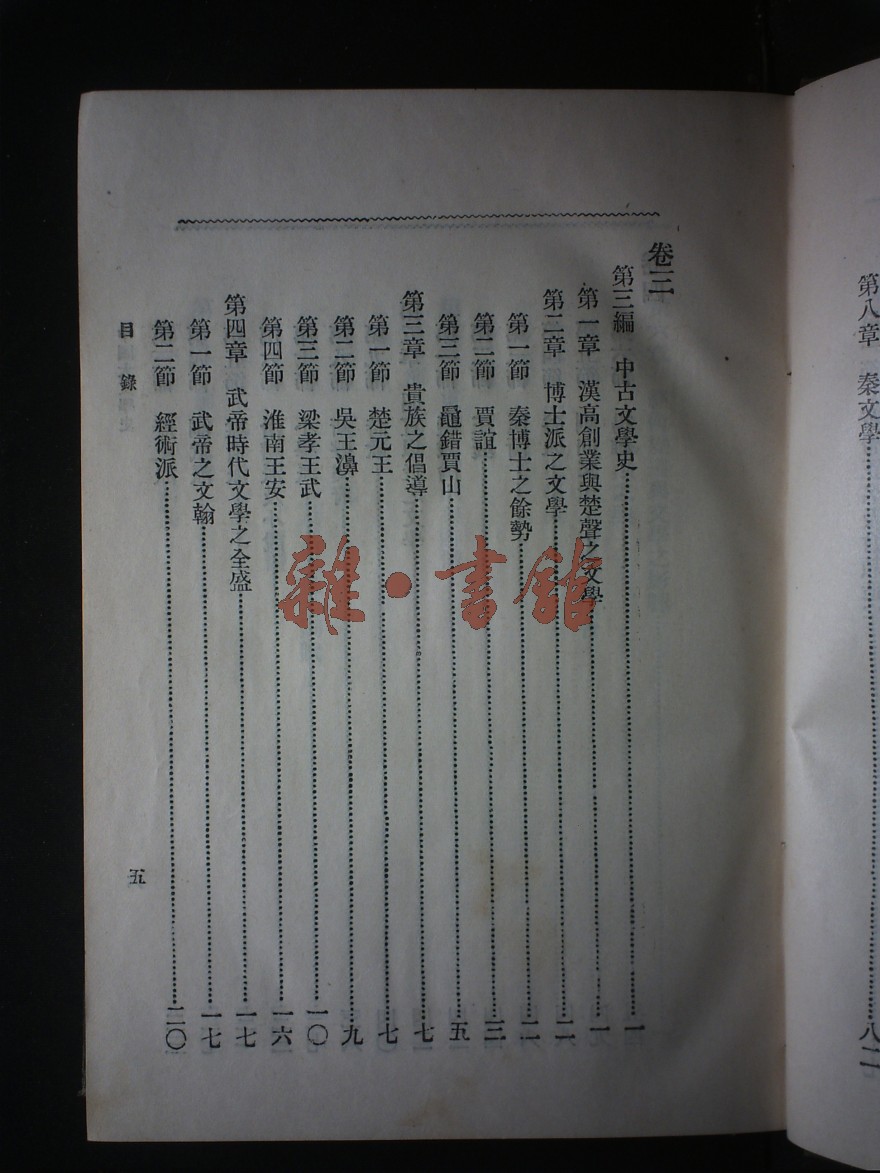 第八章　秦文學……八二
卷三
第三編　中古文學史……一
第一章　漢高創業與楚聲之文學……一
第二章　博士派之文學……二
第一節　秦博士之餘勢……二
第二節　賈誼……三
第三節　鼂錯賈山……五
第三章　貴族之倡導……七
第一節　楚元王……七
第二節　吳王濞……九
第三節　梁孝王武……一〇
第四節　淮南王安……一六
第四章　武帝時代文學之全盛……一七
第一節　武帝之文翰……一七
第二節　經術派……二〇
目錄
五
雜·書館